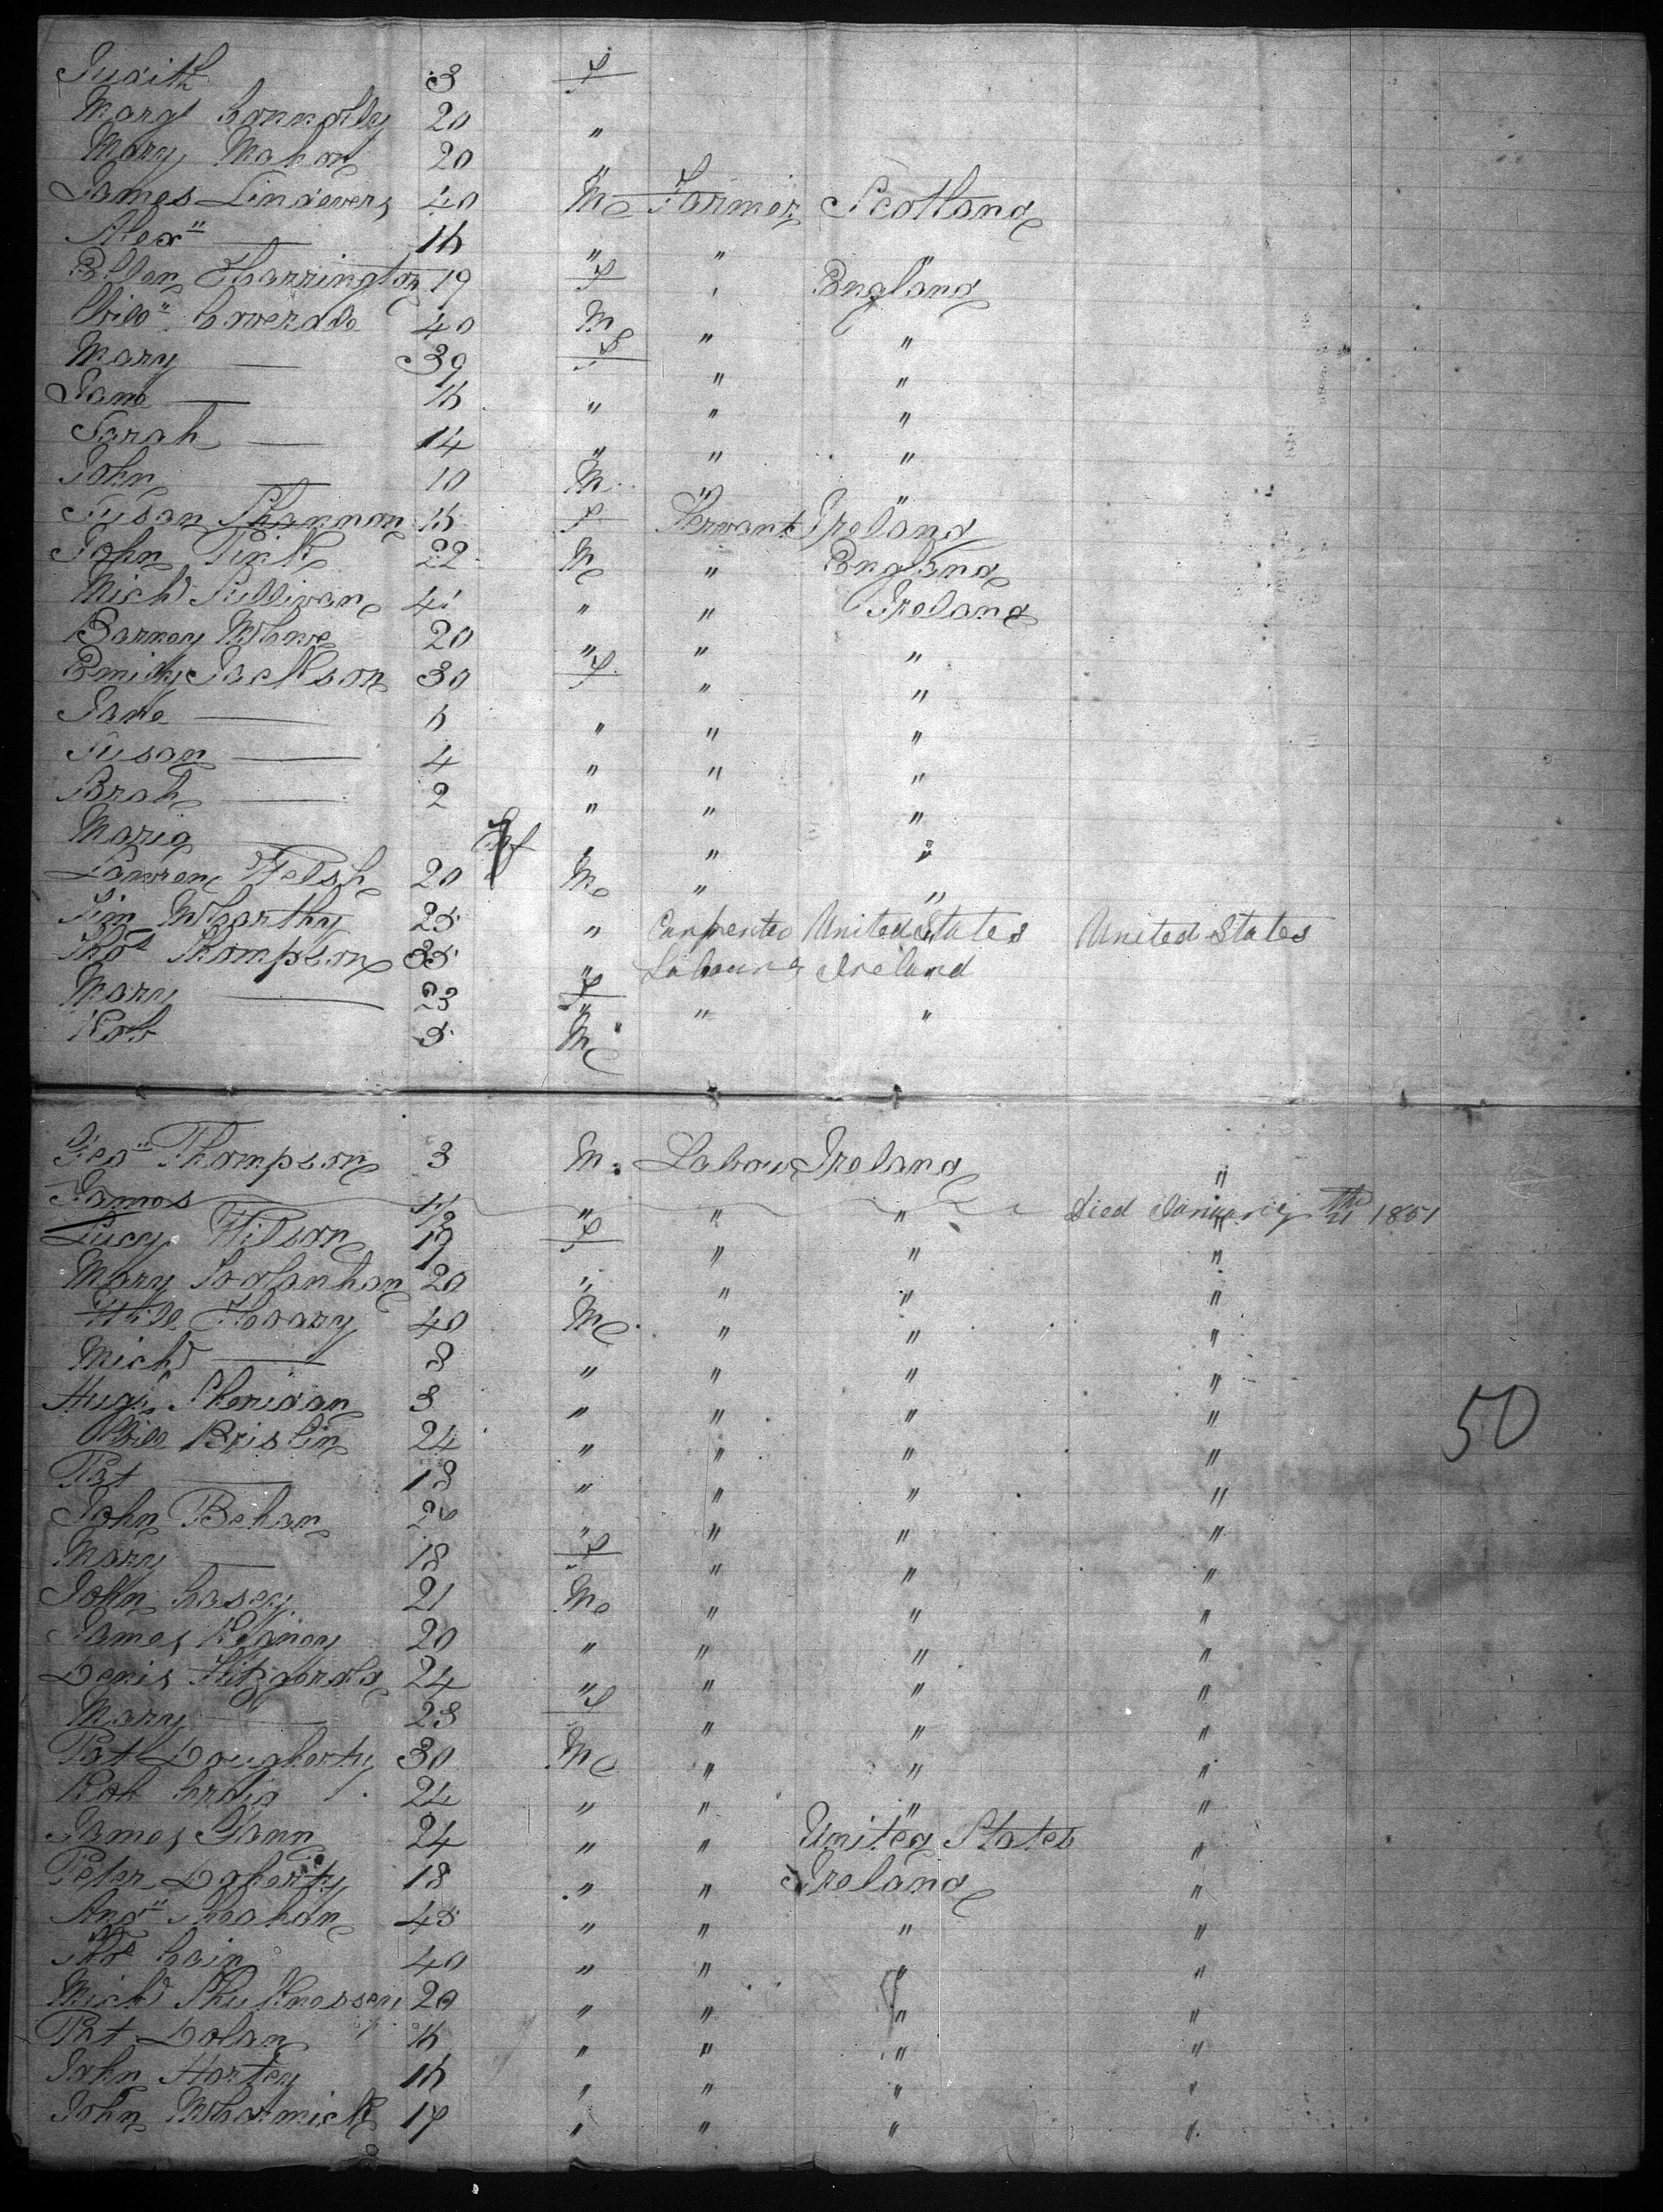 Judith 3 F
Margt Connolly 20 "
Mary Mahon 20 "
James Lindevers 40 M Farmer Scotland
Alexr — 16 " " "
Ellen Harrington 19 F " England
Willm Coverdale 40 M " "
Mary — 39 F " "
Jane — 16 " " "
Sarah — 14 " " "
John — 10 M " "
Susan Shannon 16 F Servant Ireland
John Pink 22 M " England
Michl Sullivan 41 " " Ireland
Barney 20 " " "
Emily Jackson 30 F " "
Jane — 6 " " "
Susan — 4 " " "
— 2 " " "
Maria — Inf " " "
Lawrence Welsh 20 M " "
Tim McCarthy 25 " Carpenter United States United States
Thos Thompson 35 " Labourer Ireland
Mary — 23 F " "
Robt 5 M
Geo Thompson 3 M Labour Ireland "
James 11/12 " " " Died January 21 1851
Lucy Wilson 19 F " " "
Mary 20 " " " "
Will Hoary 40 M " " "
Michl — 8 " " " "
Hugh Sheridan 3 " " " "
Will Brislin 24 " " " "
Pat — 18 " " " "
John Behan 26 " " " "
Mary — 18 F " " "
John Casey 21 M " " "
James 20 " " " "
Denis Fitzgerald 24 " " " "
Mary — 23 F " " "
Pat Dougherty 30 M " " "
Rob Craig 24 " " " "
James Gann 24 " " United States "
Peter Doherty 18 " " Ireland "
Andw Sheahan 45 " " " "
Thos Cain 40 " " " "
Michl 20 " " " "
Pat Dolan 16 " " " "
John Hartey 16 " " " "
John McCormick 17 " " " "
50